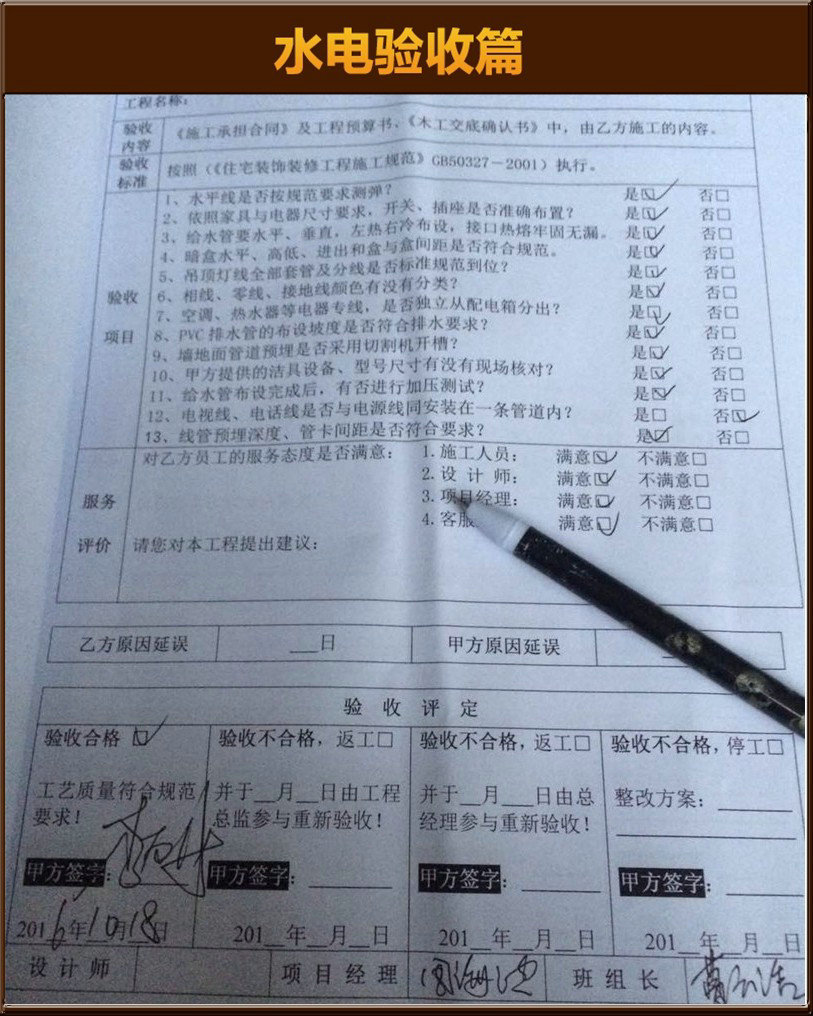 水电验收篇
工程名称：
验收内容 《施工承担合同》及工程预算书、《木工交底确认书》中，由乙方施工的内容。
验收标准 按照（《住宅装饰装修工程施工规范》GB50327－2001）执行。
验收项目
1、水平线是否按规范要求测弹？ 是□ 否□
2、依照家具与电器尺寸要求，开关、插座是否准确布置？ 是□ 否□
3、给水管要水平、垂直，左热右冷布设，接口热熔牢固无漏。 是□ 否□
4、暗盒水平、高低、进出和盒与盒间距是否符合规范。 是□ 否□
5、吊顶灯线全部套管及分线是否标准规范到位？ 是□ 否□
6、相线、零线、接地线颜色有没有分类？ 是□ 否□
7、空调、热水器等电器专线，是否独立从配电箱分出？ 是□ 否□
8、PVC 排水管的布设坡度是否符合排水要求？ 是□ 否□
9、墙地面管道预埋是否采用切割机开槽？ 是□ 否□
10、甲方提供的洁具设备、型号尺寸有没有现场核对？ 是□ 否□
11、给水管布设完成后，有否进行加压测试？ 是□ 否□
12、电视线、电话线是否与电源线同安装在一条管道内？ 是□ 否□
13、线管预埋深度、管卡间距是否符合要求？ 是□ 否□
服务评价
对乙方员工的服务态度是否满意： 1.施工人员： 满意□ 不满意□
2.设 计 师： 满意□ 不满意□
3.项目经理： 满意□ 不满意□
4.客服 满意□ 不满意□
请您对本工程提出建议：
乙方原因延误 ___日 甲方原因延误
验 收 评 定
验收合格 □ 验收不合格，返工□ 验收不合格，返工□ 验收不合格，停工□
工艺质量符合规范 并于__月__日由工程 并于__月___日由总 整改方案：
要求！ 总监参与重新验收！ 经理参与重新验收！
甲方签字： 甲方签字： 甲方签字： 甲方签字：
2016年10月18日 201__年__月__日 201__年__月__日 201__年__月__日
设计师 项目经理 班组长